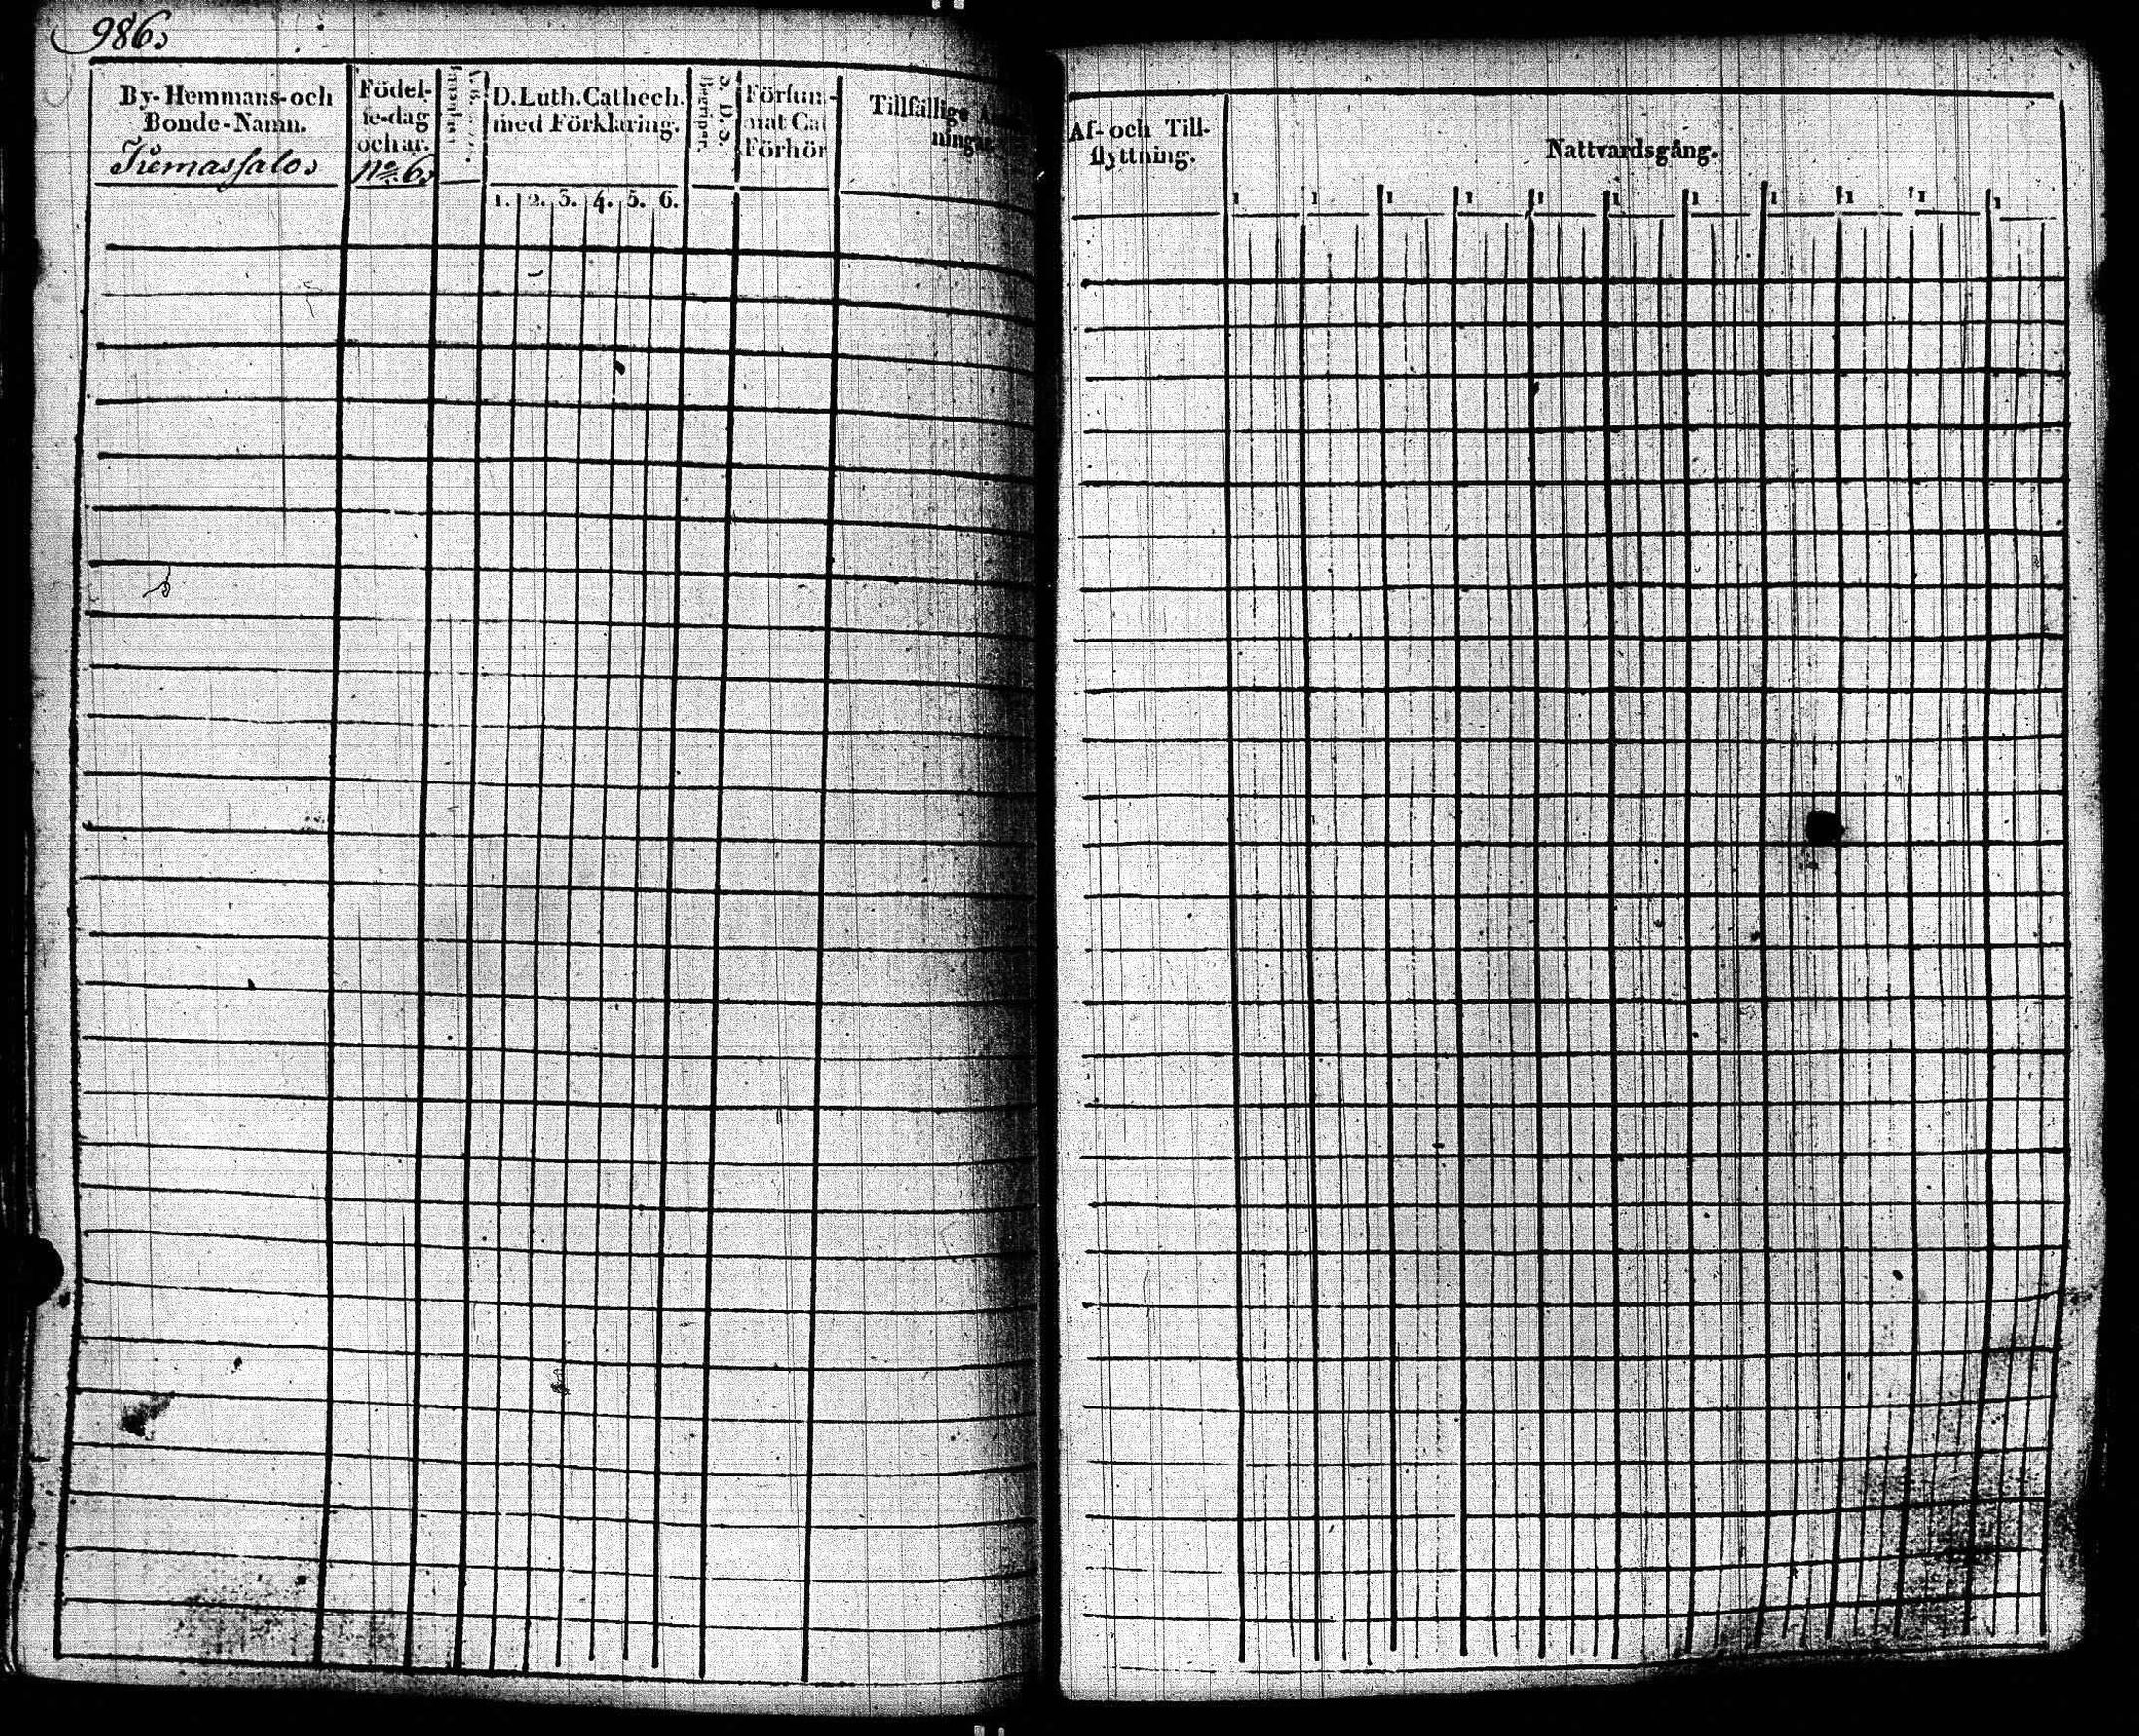 986.
By-Hemmans-och
Bonde-Namn.
Kiemassalo.
Födel-
se-dag
och år.
No 6.
D. Luth. Cathech.
med Förklaring.
1. 2. 3. 4. 5. 6.
Begriper.
S. D. S.
Försum-
mat Cat
Förhör
Tillfällige
ningar
Af- och Till-
flyttning.
Nattvardsgång.
1 1 1 1 1 1 1 1 1 1 1